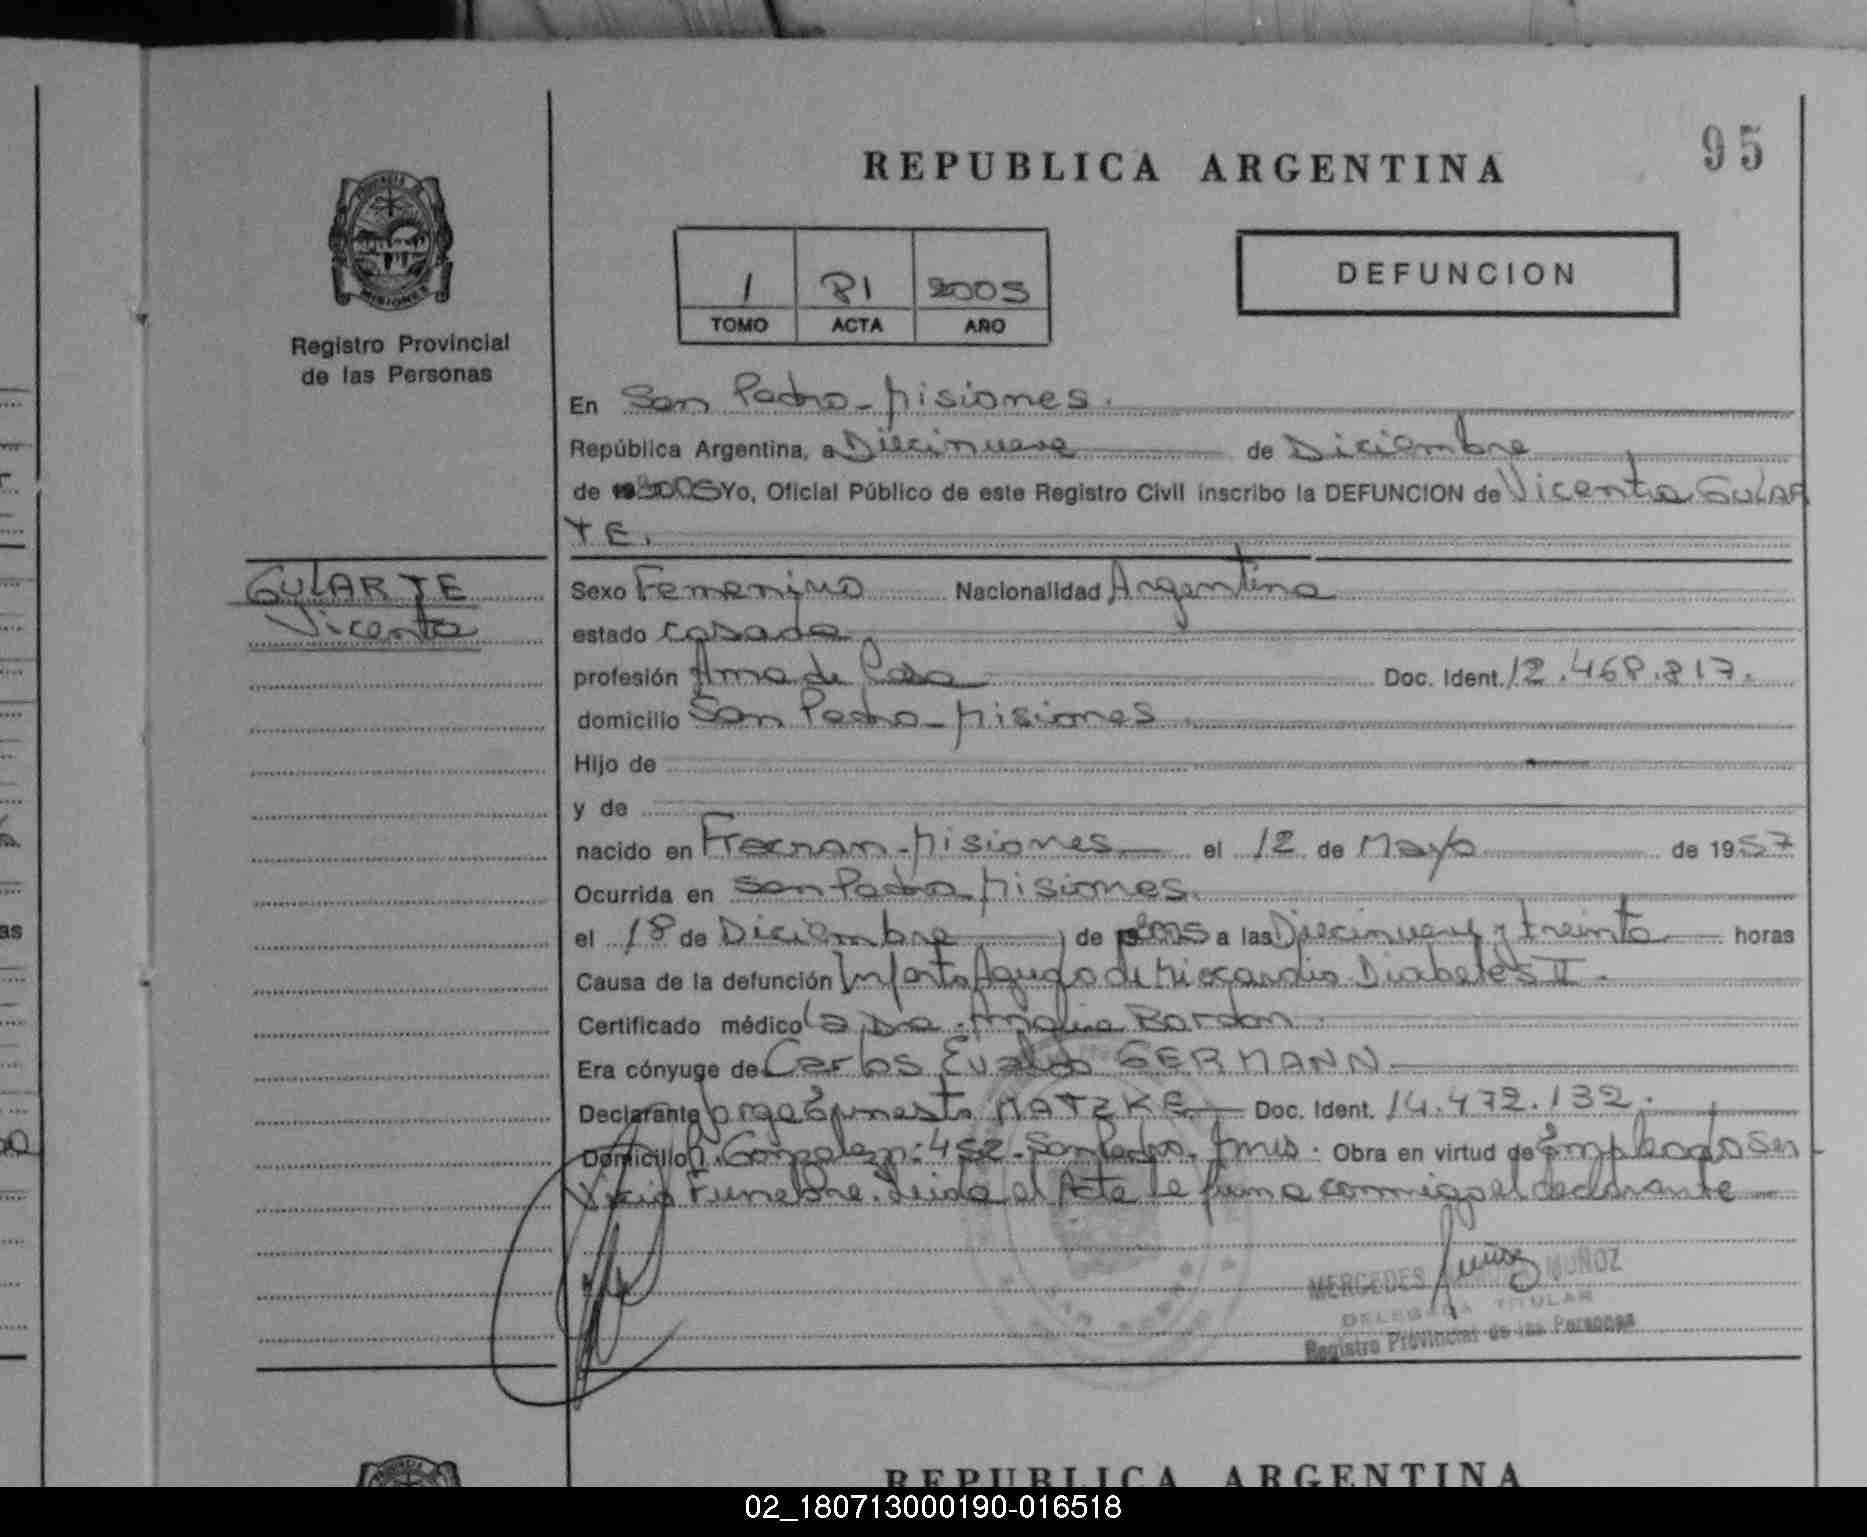 95
REPUBLICA ARGENTINA
PROVINCIA DE
MISIONES
Registro Provincial
de las Personas
1 81 2005
TOMO ACTA AÑO
DEFUNCION
En San Pedro - Misiones.
República Argentina, a Diecinueve de Diciembre
de 2005 Yo, Oficial Público de este Registro Civil inscribo la DEFUNCION de Vicenta GULAR
TE.
GULARTE
Vicenta
Sexo Femenino Nacionalidad Argentina
estado casada
profesión Ama de Casa Doc. Ident. 12.468.817.
domicilio San Pedro - Misiones
Hijo de
y de
nacido en Fracran - Misiones el 12 de Mayo de 1957
Ocurrida en San Pedro Misiones.
el 18 de Diciembre de 2005 a las Diecinueve y treinta horas
Causa de la defunción Infarto Agudo de Miocardio Diabetes II.
Certificado médico la Dra. Analia Bordon.
Era cónyuge de Carlos Evaldo GERMANN
Declarante Jorge Ernesto MATZKE Doc. Ident. 14.472.132.
Domicilio Gonzalez n: 452 - San Pedro - Mnes. Obra en virtud de Empleado Ser
vicio Funebre. Leida el Acta la firma conmigo el declarante
MERCEDES MUÑOZ
DELEGADA TITULAR
Registro Provincial de las Personas
PROVINCIA
REPUBLICA ARGENTINA
02_180713000190-016518